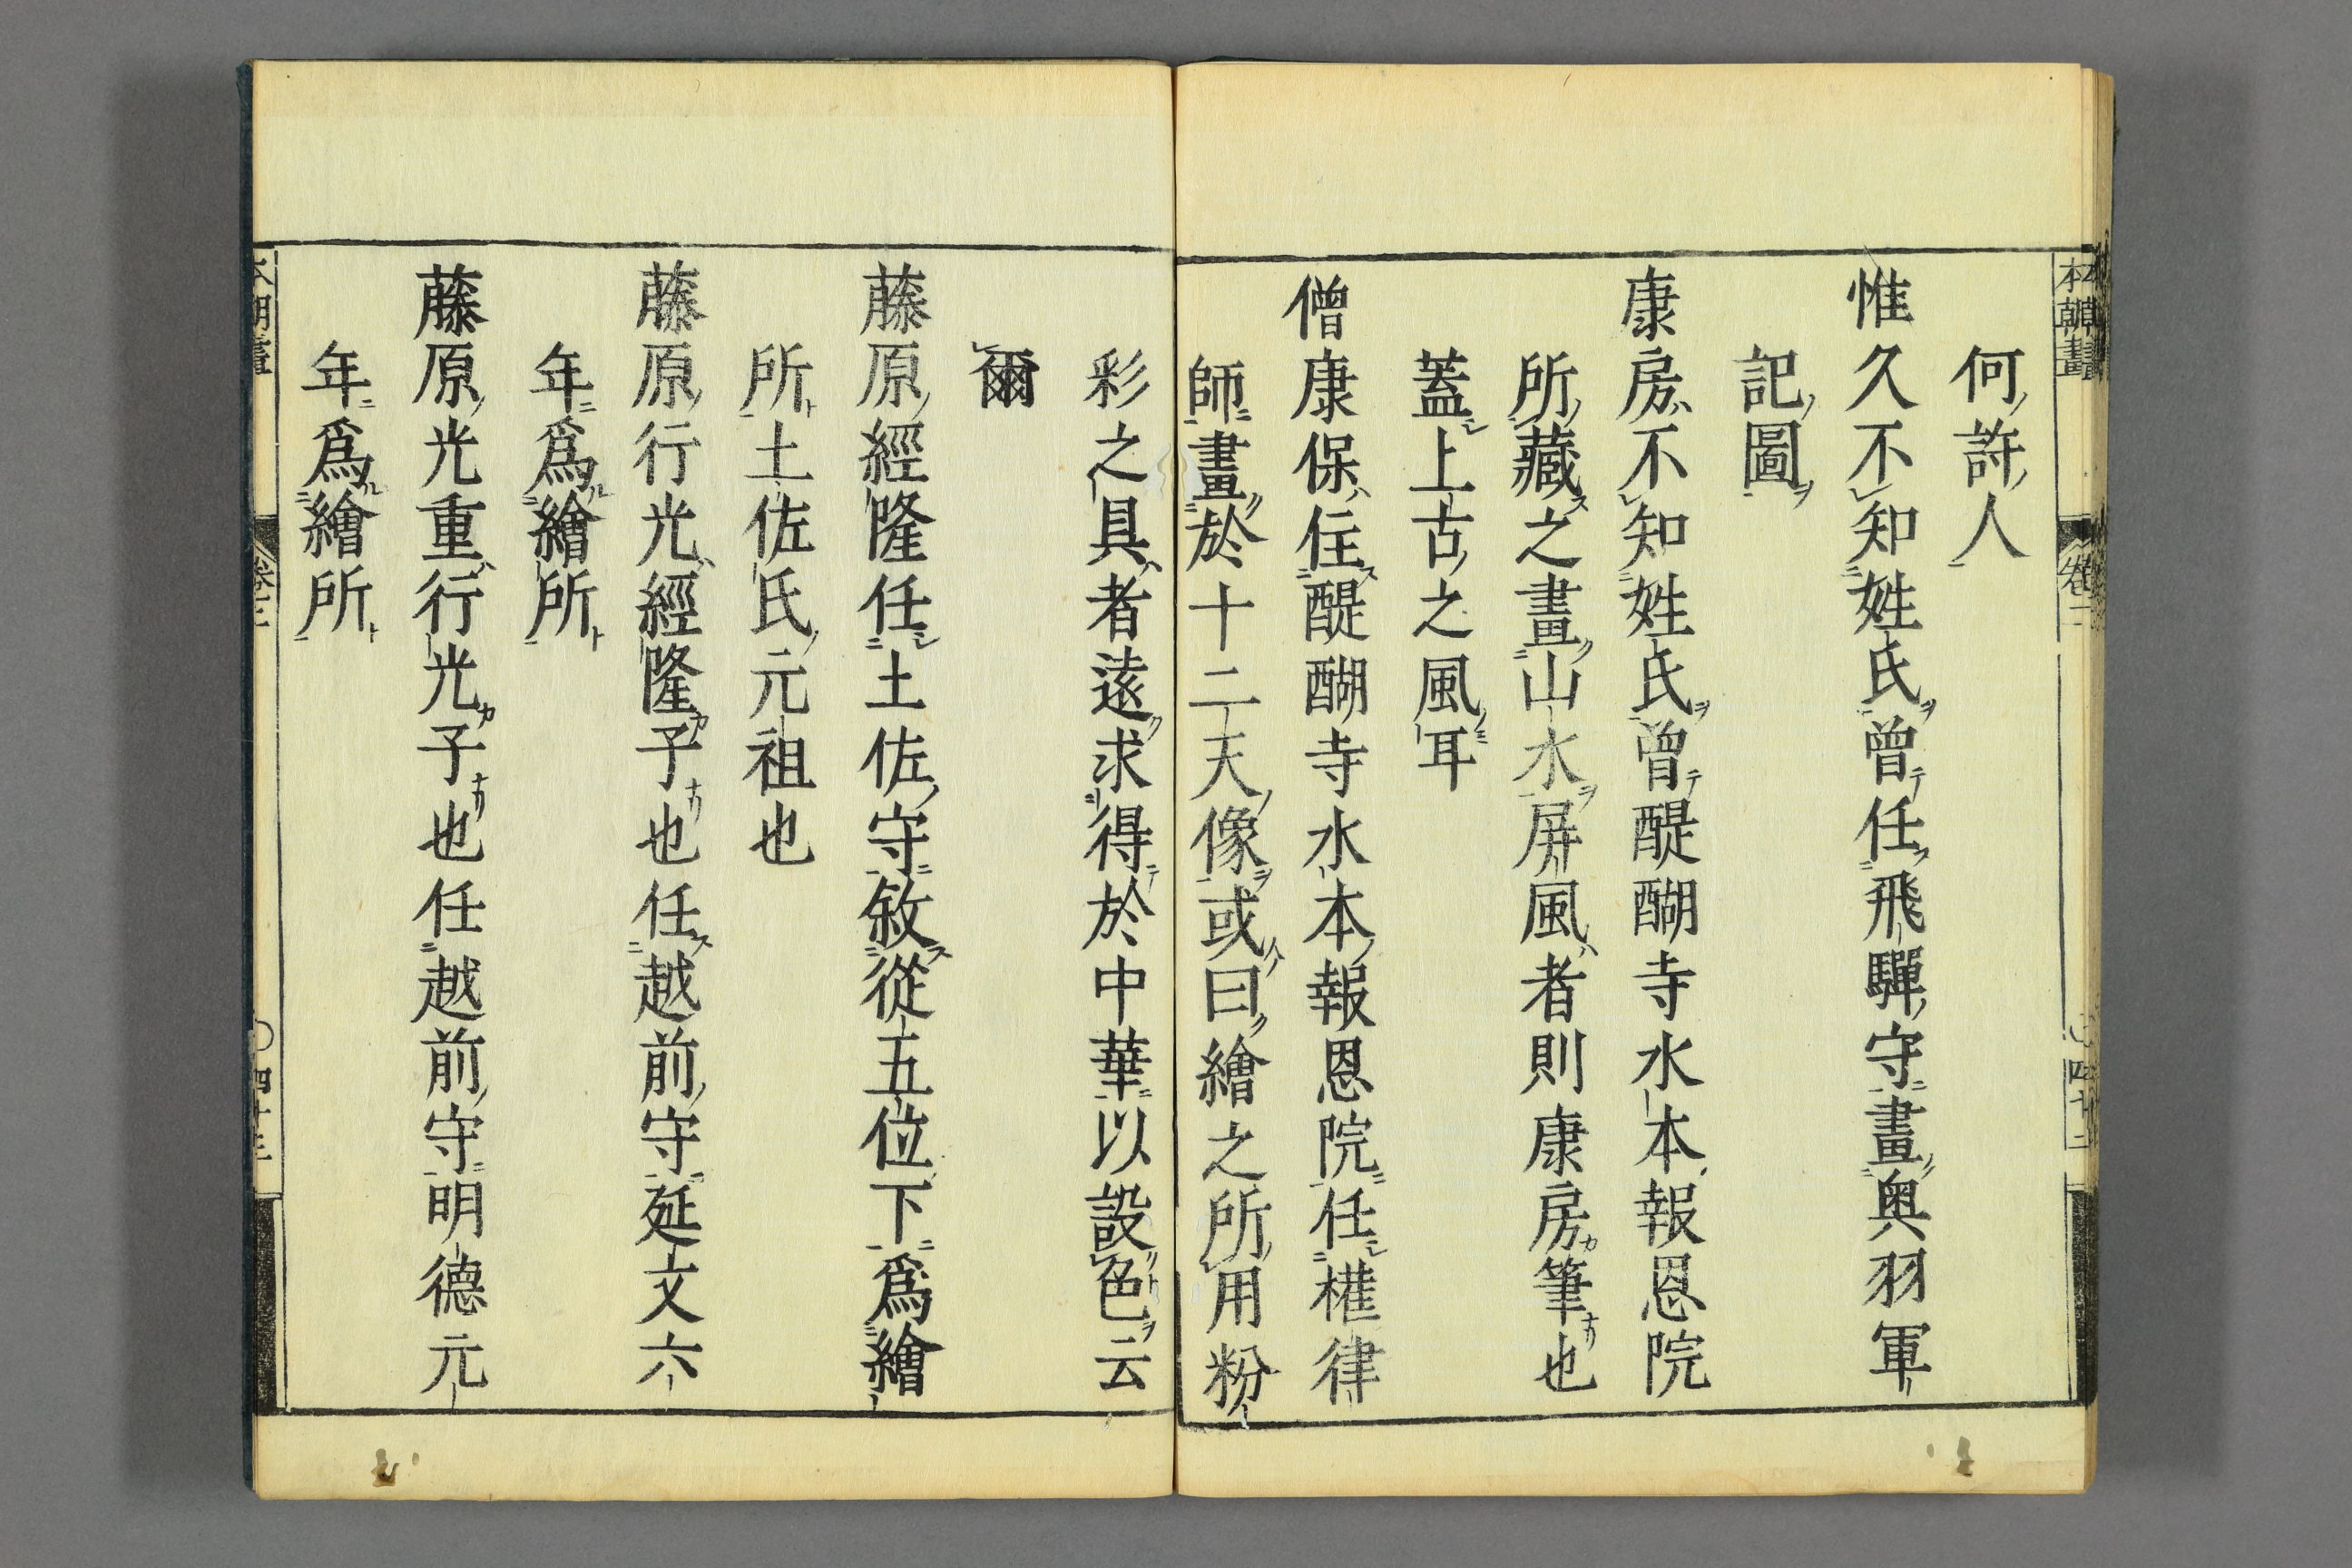 本朝畫
卷二
〇四十二
何許人
惟久不知姓氏曾任飛驒守畫奥羽軍
記圖
康房不知姓氏曾醍醐寺水本報恩院
所藏之畫山水屏風者則康房筆也
蓋上古之風耳
僧康保住醍醐寺水本報恩院任權律
師畫於十二天像或曰繪之所用粉
彩之具者遠求得於中華以設色云
爾
藤原經隆任土佐守敘從五位下爲繪
所土佐氏元祖也
藤原行光經隆子也任越前守延文六
年爲繪所
藤原光重行光子也任越前守明德元
年爲繪所
本朝畫
卷二
〇四十三